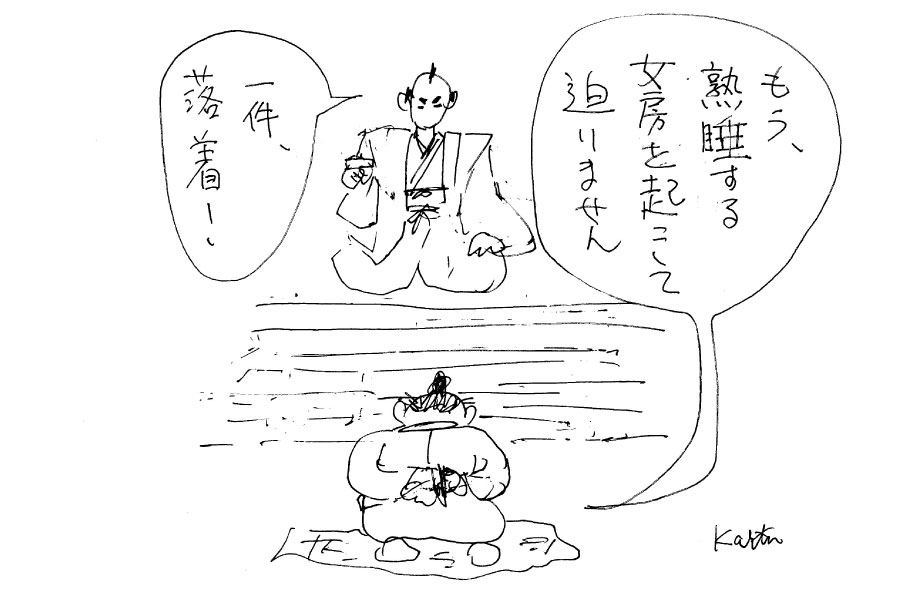 もう、
熟睡する
女房を起こして
迫りません
一件、
落着！、